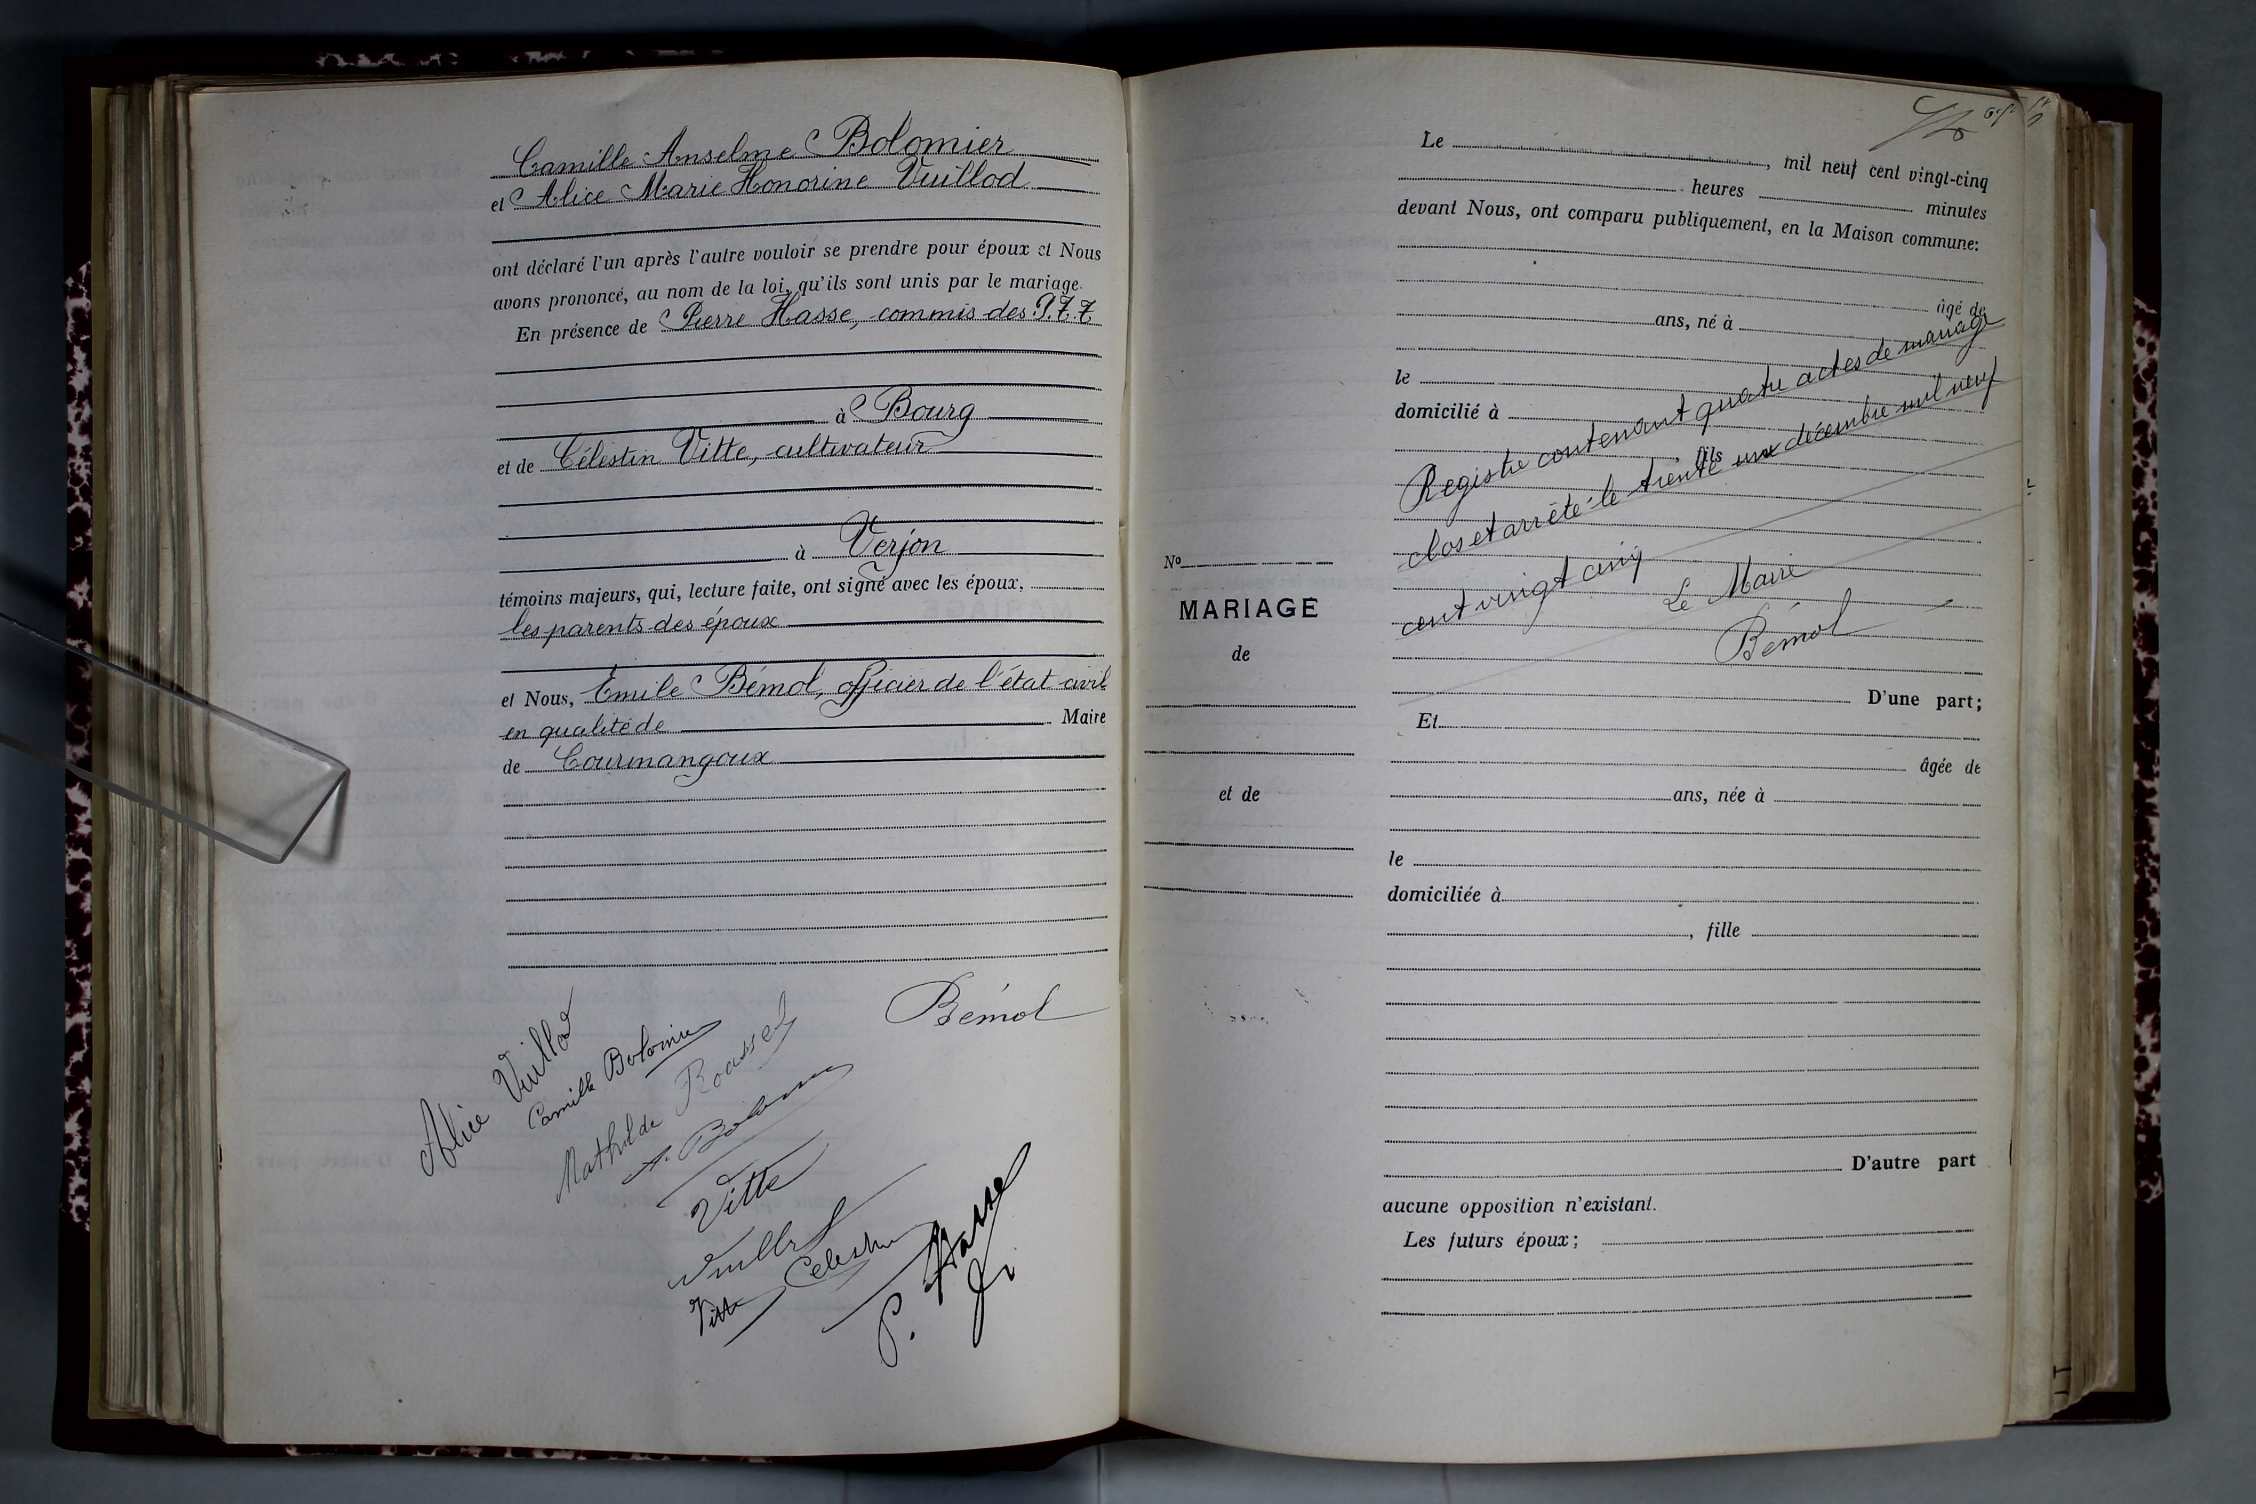 Camille Anselme Bolomier
et Alice Marie Honorine Vuillod
ont déclaré l'un après l'autre vouloir se prendre pour époux et Nous
avons prononcé, au nom de la loi, qu'ils sont unis par le mariage.
En présence de Pierre Hasse, commis des P.T.T
à Bourg
et de Célestin Vitte, cultivateur
à Verjon
témoins majeurs, qui, lecture faite, ont signé avec les époux,
les parents des époux
et Nous, Emile Bémol, officier de l'état civil
en qualité de Maire
de Courmangoux
Bémol
Alice Vuillod
Camille Bolomier
Mathilde Roussel
A. Bolomier
Vitte
Vuillod
Vitte Célestin
P. Hasse
Le , mil neuf cent vingt-cinq
heures minutes
devant Nous, ont comparu publiquement, en la Maison commune:
âgé de
ans, né à
le
domicilié à
, fils
Registre contenant quatre actes de mariage
clos et arrêté le trente un décembre mil neuf
cent vingt cinq
Le Maire
Bémol
No
MARIAGE
de
et de
D'une part;
Et
âgée de
ans, née à
le
domiciliée à
, fille
D'autre part
aucune opposition n'existant.
Les futurs époux;